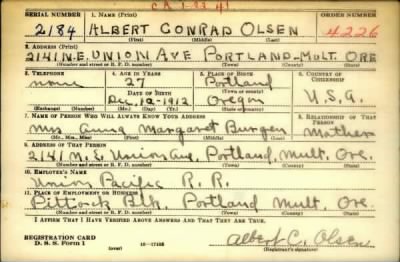 CA 1-23-41
SERIAL NUMBER 1. NAME (Print) ORDER NUMBER
2184 ALBERT CONRAD OLSEN 4226
(First) (Middle) (Last)
2. ADDRESS (Print)
2141 N.E. UNION AVE PORTLAND-MULT. ORE
(Number and street or R. F. D. number) (Town) (County) (State)
3. TELEPHONE 4. AGE IN YEARS 5. PLACE OF BIRTH 6. COUNTRY OF CITIZENSHIP
none 27 Portland
DATE OF BIRTH (Town or county)
Dec. 12-1912 Oregon U.S.A.
(Exchange) (Number) (Mo.) (Day) (Yr.) (State or country)
7. NAME OF PERSON WHO WILL ALWAYS KNOW YOUR ADDRESS 8. RELATIONSHIP OF THAT PERSON
Mrs Anna Margaret Burgen Mother
(Mr., Mrs., Miss) (First) (Middle) (Last)
9. ADDRESS OF THAT PERSON
2141 N.E. Union Ave, Portland, Mult. Ore.
(Number and street or R. F. D. number) (Town) (County) (State)
10. EMPLOYER'S NAME
Union Pacific R. R.
11. PLACE OF EMPLOYMENT OR BUSINESS
Pittock Blk. Portland Mult. Ore.
(Number and street or R. F. D. number) (Town) (County) (State)
I AFFIRM THAT I HAVE VERIFIED ABOVE ANSWERS AND THAT THEY ARE TRUE.
REGISTRATION CARD
D. S. S. Form 1 (over) 16-17105 Albert C. Olsen
(Registrant's signature)